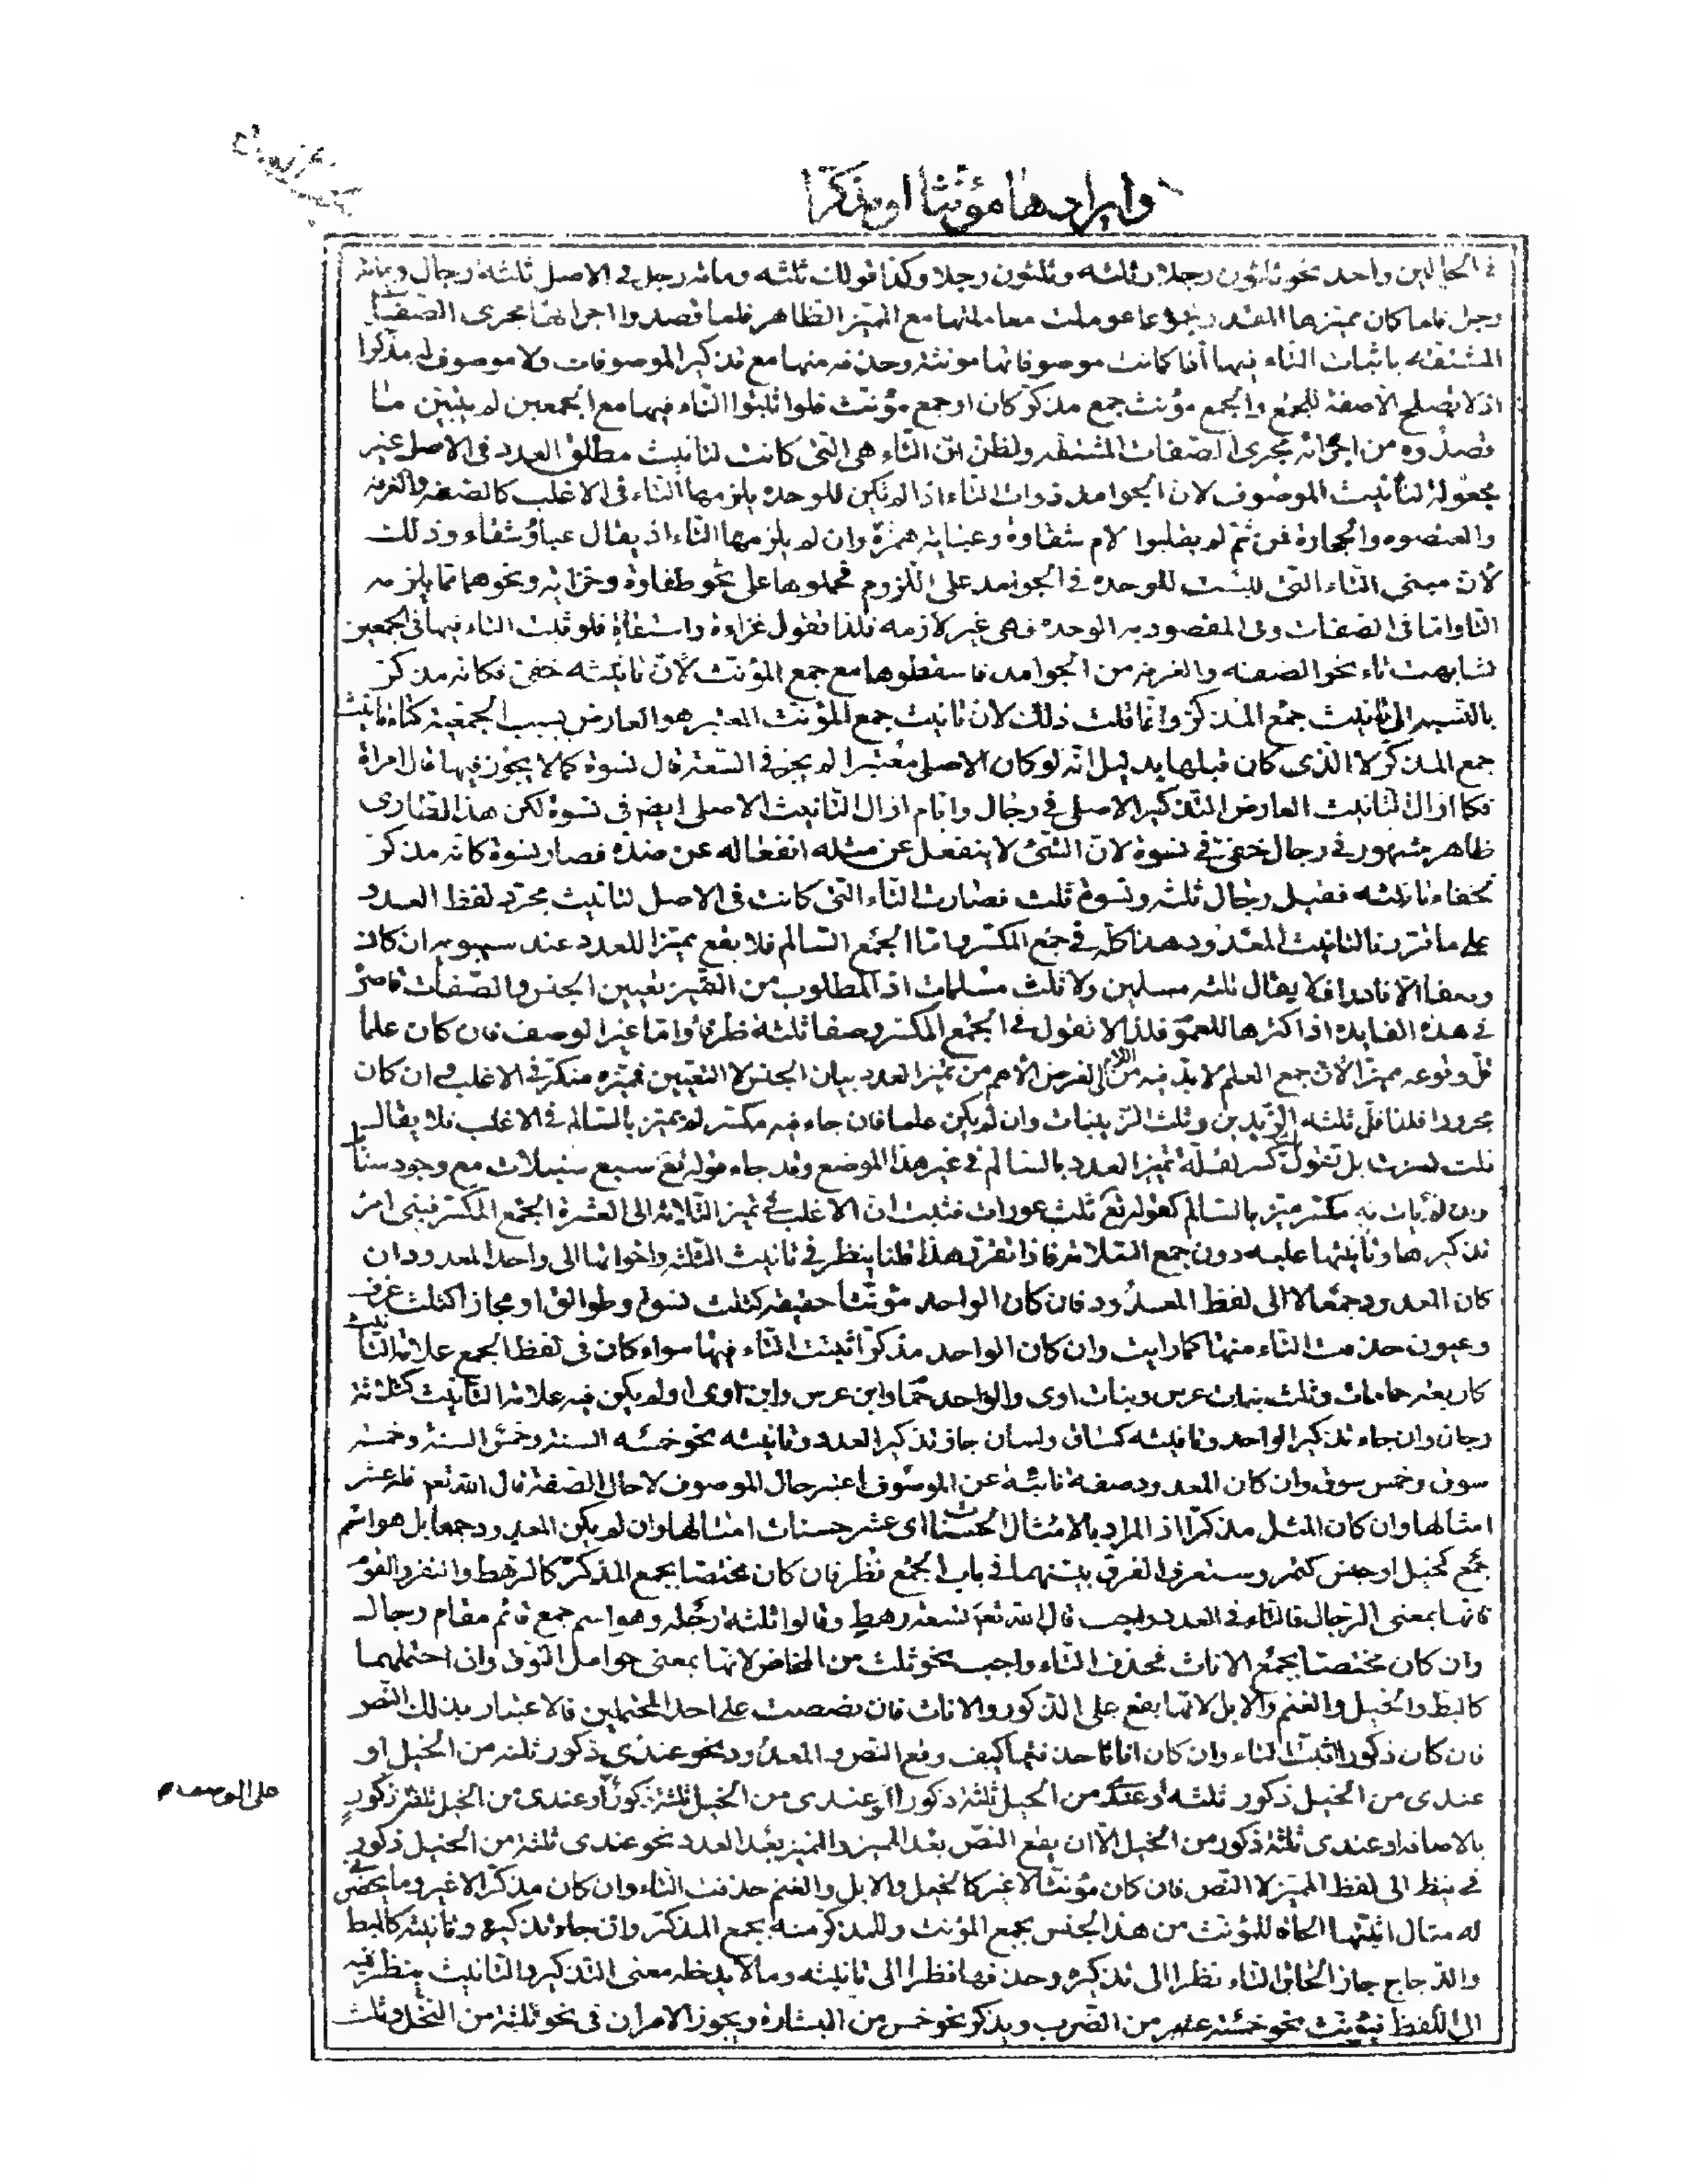 وايرادها مؤنثا او مذكرا
في الحالين واحد نحو ثلثون رجلا وثلثه وثلثون رجلا وكذا قولك ثلثه ومائه رجل في الاصل ثلثة رجال ومائه
رجل فلما كان مميزها المقدر مجموعا عوملت معاملتها مع المميز الظاهر فلما قصدوا اجراءها مجرى الصفات
المشتقه باثبات التاء فيها اذا كانت موصوفاتها مونثه وحذفه منها مع تذكير الموصوفات ولا موصوف له مذكرا
اذ لا يصلح الاصفة للجمع والجمع مؤنث جمع مذكر كان او جمع مؤنث فلو اثبتوا التاء فيها مع الجمعين لم يتبين ما
قصدوه من اجرائه مجرى الصفات المشتقه ولظن ان التاء هي التي كانت لتانيث مطلق العدد في الاصل غير
مجعوله لتأنيث الموصوف لان الجوامد ذوات التاء اذا لم تكن للوحده يلزمها التاء في الاغلب كالضفه والغرفه
والعنصوه والحجارة فمن ثم لم يقلبوا لام شقاوة وعباية همزة وان لم يلزمها التاء اذ يقال عباء وشقاء وذلك
لان مبنى التاء التي ليست للوحده في الجوامد على اللزوم فحملوها على نحو طفاوة وخزايه ونحوهما مما يلزمه
التا واما في الصفات وفي المقصود به الوحدة فهي غير لازمه فلذا تقول غزاءة واستقاءة فلو ثبتت التاء فيها في الجمعين
لشابهت تاء نحو الضفه والغرفه من الجوامد فاسقطوها مع جمع المؤنث لان تانيثه خفي فكانه مذكر
بالنسبه الى تانيث جمع المذكر وانما قلت ذلك لان تانيث جمع المؤنث المعتبر هو العارض بسبب الجمعية كتاء تانيث
جمع المذكر لا الذي كان قبلها بدليل انه لو كان الاصلي معتبرا لم يجز في السعة قال نسوة كما لا يجوز فيها قال امراة
فكما ازال التانيث العارض التذكير الاصلي في رجال وايام ازال التانيث الاصلي ايضم في نسوة لكن هذا الطاري
ظاهر مشهور في رجال خفي في نسوة لان الشئ لا ينفعل عن مثله انفعاله عن ضده فصار نسوة كانه مذكر
لخفاء تانيثه فقيل رجال ثلثه ونسوة ثلث فصارت التاء التي كانت في الاصل لتانيث مجرد لفظ العدد
على ما قررنا لتانيث المعدود هذا كله في جمع المكسر واما الجمع السالم فلا يقع مميزا للعدد عند سيبويه ان كان
وصفا الا نادرا فلا يقال ثلثه مسلمين ولا ثلث مسلمات اذ المطلوب من التمييز تعيين الجنس والصفات قاصرة
في هذه الفايده اذ اكثرها للعموم فلذا لا تقول في الجمع المكسر وصفا ثلثة ظرفاء واما غير الوصف فان كان علما
قل وقوعه مميزا لان جمع العلم لابد فيه من اللام والغرض الاهم من تمييز العدد بيان الجنس لا التعيين فمميزه منكر في الاغلب وان كان
مجرورا فلذا قل ثلثه الزيدين وثلث الزينبات وان لم يكن علما فان جاء فيه مكسر لم يميز بالسالم في الاغلب فلا يقال
ثلث كسرات بل تقول كسر لقلة تمييز العدد بالسالم في غير هذا الموضع وقد جاء قوله تع سبع سنبلات مع وجود سنابل
وان لم يات له مكسر ميز بالسالم كقوله تع ثلث عورات فثبت ان الاغلب في تمييز الثلاثه الى العشرة الجمع المكسر فبنى امر
تذكيرها وتأنيثها عليه دون جمع السلامة فاذا تقرر هذا قلنا ينظر في تانيث الثلثه واخواتها الى واحد المعدود ان
كان المعدود جمعا لا الى لفظ المعدود فان كان الواحد مؤنثا حقيقه كثلث نسوة وطوالق او مجازا كثلث غرف
وعيون حذفت التاء منها كما رايت وان كان الواحد مذكرا اثبتت التاء فيها سواء كان في لفظ الجمع علامة التأنيث
كاربعه حمامات وثلث بنات عرس وبنات اوى والواحد حمام وابن عرس وابن اوى او لم يكن فيه علامة التانيث كثلاثة
رجال وان جاء تذكير الواحد وتانيثه كساق ولسان جاز تذكير العدد وتانيثه نحو خمسه السنة وخمس السنة وخمسه
سوق وخمس سوق وان كان المعدود صفة نائبة عن الموصوف اعتبر حال الموصوف لا حال الصفة قال الله تعم فله عشر
امثالها وان كان المثل مذكرا اذ المراد بالامثال الحسنات اى عشر حسنات امثالها وان لم يكن المعدود جمعا بل هو اسم
جمع كخيل او جنس كتمر وستعرف الفرق بينهما في باب الجمع نظر فان كان مختصا بجمع المذكر كالرهط والنفر والقوم
فانها بمعنى الرجال فالتاء في العدد واجب قال الله تعم تسعة رهط وقالوا ثلثة رجلة وهو اسم جمع قائم مقام رجال
وان كان مختصا بجمع الاناث فحذف التاء واجب نحو ثلث من المخاض لانها بمعنى حوامل النوق وان احتملهما
كالبط والخيل والغنم والابل لانها يقع على الذكور والاناث فان نصصت على احد المحتملين فالاعتبار بذلك النص
فان كان ذكورا اثبت التاء وان كان اناثا حذفتها كيف وقع النص والمعدود نحو عندي ذكور ثلثه من الخيل او
عندي من الخيل ذكور ثلثه او عندي من الخيل ثلثة ذكور او عندي من الخيل ثلثة ذكورا او عندى من الخيل ثلثة ذكور
على الوصف
بالاضافه او عندي ثلثة ذكور من الخيل الا ان يقع النص بعد المميز والمميز بعد العدد نحو عندى ثلثة من الخيل ذكور
فح ينظر الى لفظ المميز لا النص فان كان مؤنثا لا غير كالخيل والابل والغنم حذفت التاء وان كان مذكرا لا غير وما يحضرني
له مثال اثبتها الحاقا للمؤنث من هذا الجنس بجمع المؤنث وللمذكر منه بجمع المذكر وان جاء تذكيره وتأنيثه كالبط
والدجاج جاز الحاق التاء نظرا الى تذكيره وحذفها نظرا الى تانيثه وما لا يدخله معنى التذكير والتانيث ينظر فيه
الى اللفظ فيؤنث نحو خمسة عشر من الضرب ويذكر نحو خمس من البشارة ويجوز الامران في نحو ثلثة من النخل وثلث